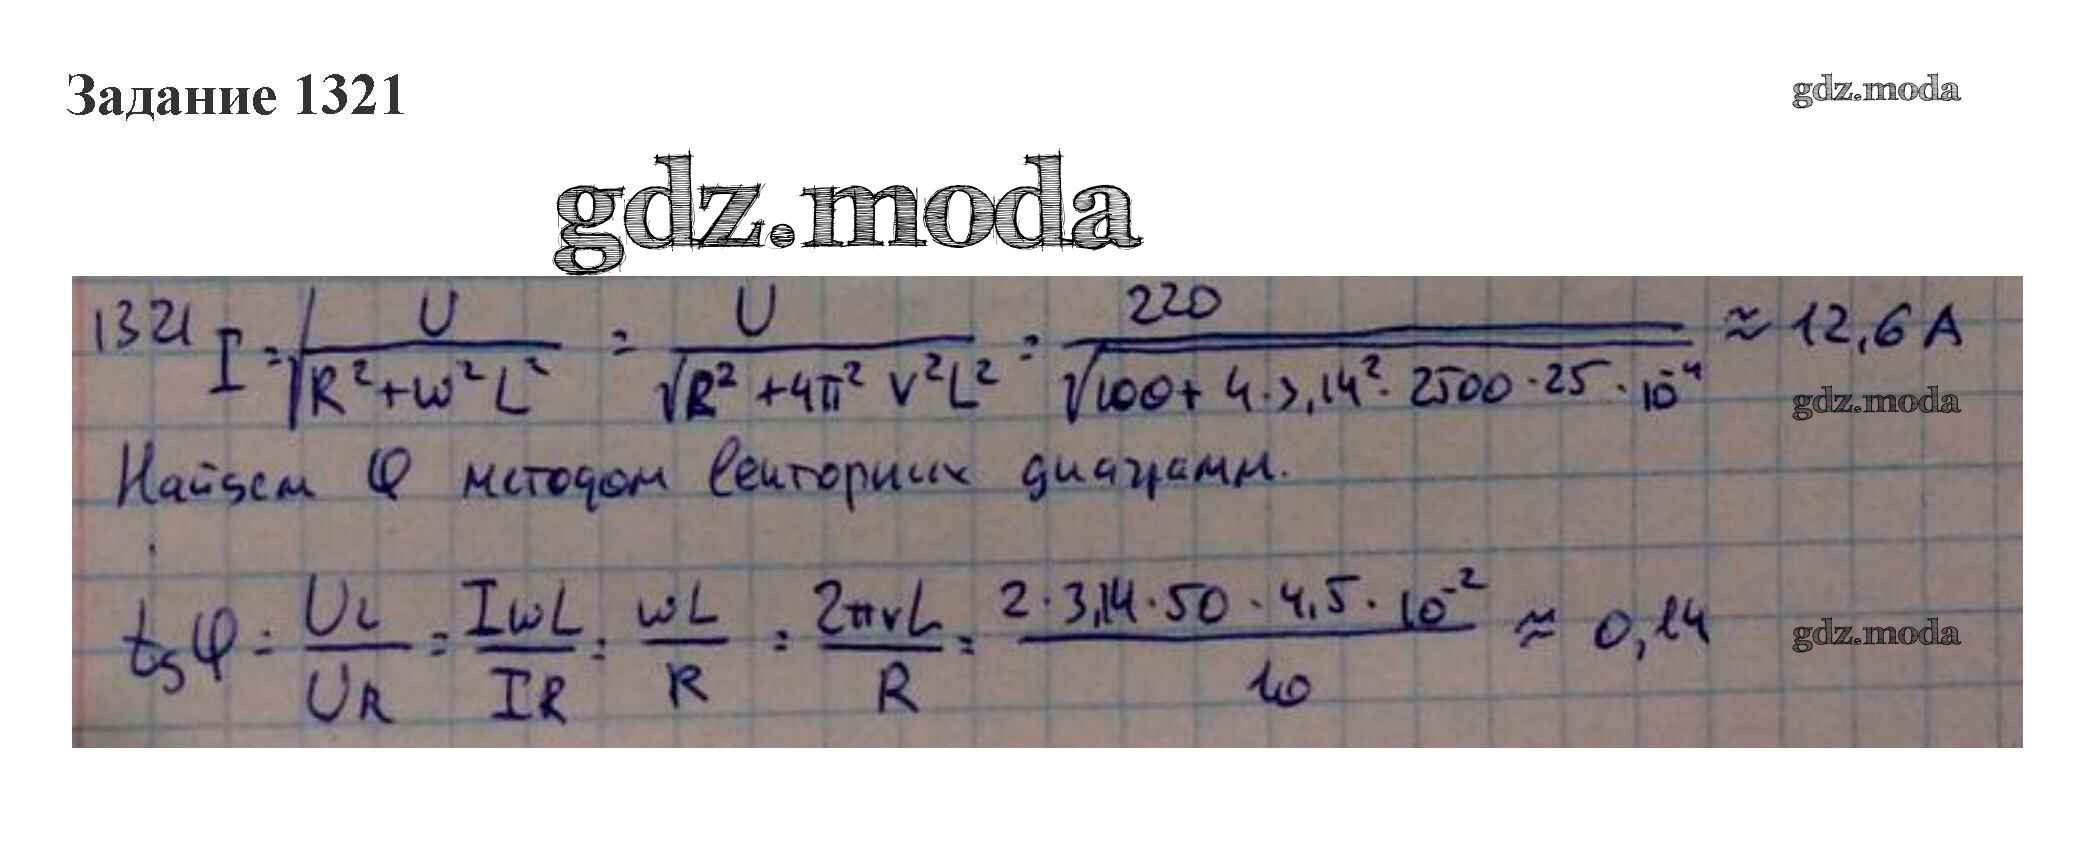 Задание 1321
gdz.moda
gdz.moda
1321 I = √U/(R² + ω²L²) = U/√(R² + 4π²ν²L²) = 220/√(100 + 4·3,14²·2500·25·10⁻⁴) ≈ 12,6 А
gdz.moda
Найдем φ методом векторных диаграмм.
tgφ = UL/UR = IωL/IR = ωL/R = 2πνL/R = 2·3,14·50·4,5·10⁻²/10 ≈ 0,14
gdz.moda